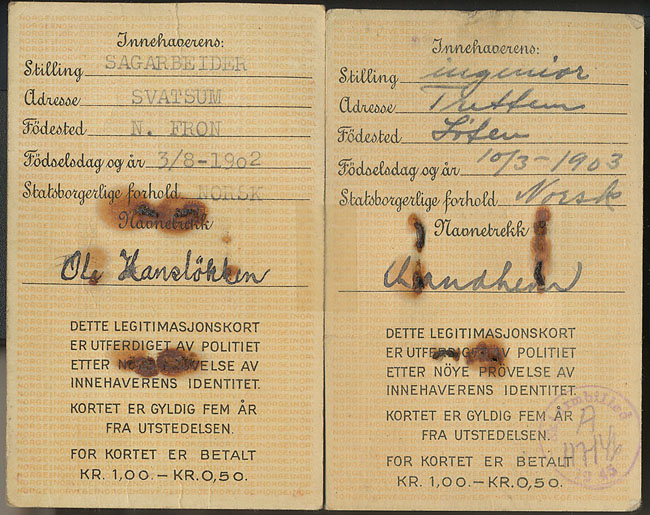 Innehaverens:
Stilling SAGARBEIDER
Adresse SVATSUM
Födested N. FRON
Födselsdag og år 3/8-1902
Statsborgerlige forhold NORSK
Navnetrekk
Ole Hanslökken
DETTE LEGITIMASJONSKORT
ER UTFERDIGET AV POLITIET
ETTER NÖYE PRÖVELSE AV
INNEHAVERENS IDENTITET.
KORTET ER GYLDIG FEM ÅR
FRA UTSTEDELSEN.
FOR KORTET ER BETALT
KR. 1,00.–KR.0,50.
Innehaverens:
Stilling ingeniør
Adresse Tretten
Födested Löten
Födselsdag og år 10/3-1903
Statsborgerlige forhold Norsk
Navnetrekk
DETTE LEGITIMASJONSKORT
ER UTFERDIGET AV POLITIET
ETTER NÖYE PRÖVELSE AV
INNEHAVERENS IDENTITET.
KORTET ER GYLDIG FEM ÅR
FRA UTSTEDELSEN.
FOR KORTET ER BETALT
KR. 1,00.–KR.0,50.
A